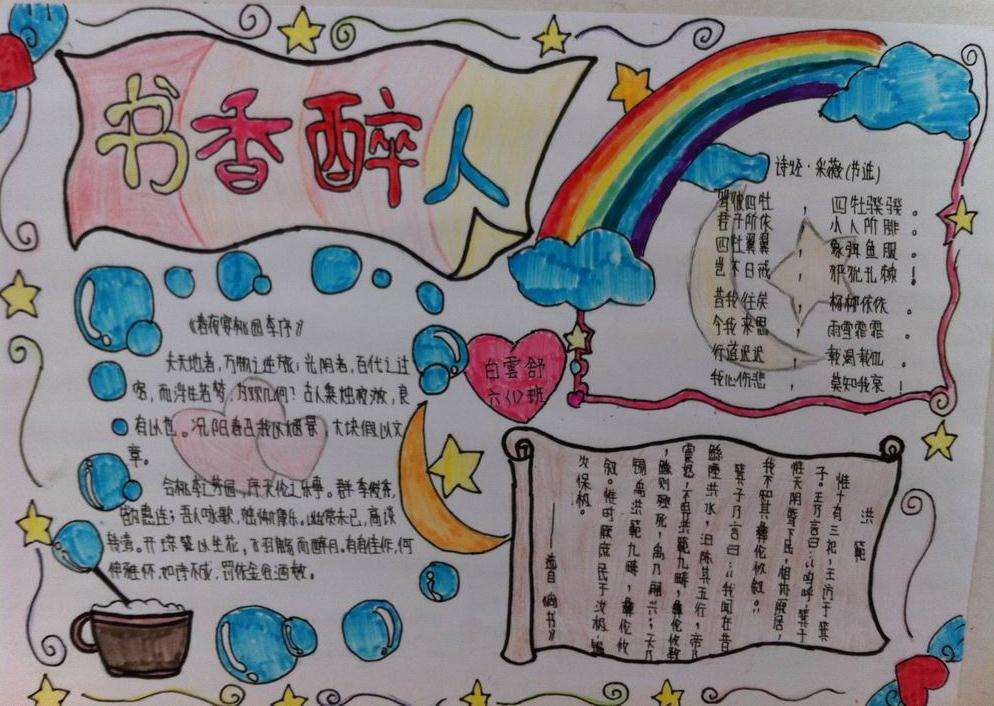 书香醉人
《春夜宴桃园李序》
夫天地者，万物之逆旅；光阴者，百代之过
客，而浮生若梦，为欢几何？古人秉烛夜游，良
有以也。况阳春召我以烟景，大块假以文
章。
会桃李之芳园，序天伦之乐事。群季俊秀，
皆为惠连；吾人咏歌，独惭康乐。幽赏未已，高谈
转清。开琼筵以坐花，飞羽觞而醉月。有佳作，何
伸雅怀，如诗不成，罚依金谷酒数。
白雲舒
六(1)班
诗经·采薇(节选)
驾彼四牡，四牡骙骙。
君子所依，小人所腓。
四牡翼翼，象弭鱼服。
岂不日戒，玁狁孔棘！
昔我往矣，杨柳依依。
今我来思，雨雪霏霏。
行道迟迟，载渴载饥。
我心伤悲，莫知我哀！
洪範
惟十有三祀，王访于箕
子。王乃言曰：“呜呼，箕子
惟天阴骘下民，相协厥居，
我不知其彝伦攸叙。”
箕子乃言曰：“我闻在昔
鲧堙洪水，汩陈其五行，帝乃
震怒，不畀洪範九畴，彝伦攸斁
，鲧则殛死，禹乃嗣兴；天乃
锡禹洪範九畴，彝伦攸
叙。惟时厥庶民于汝极，锡
汝保极。
——选自《尚书》